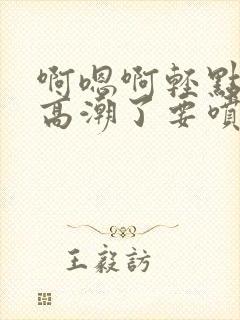 啊嗯啊轻點
高潮了要噴
王毅訪